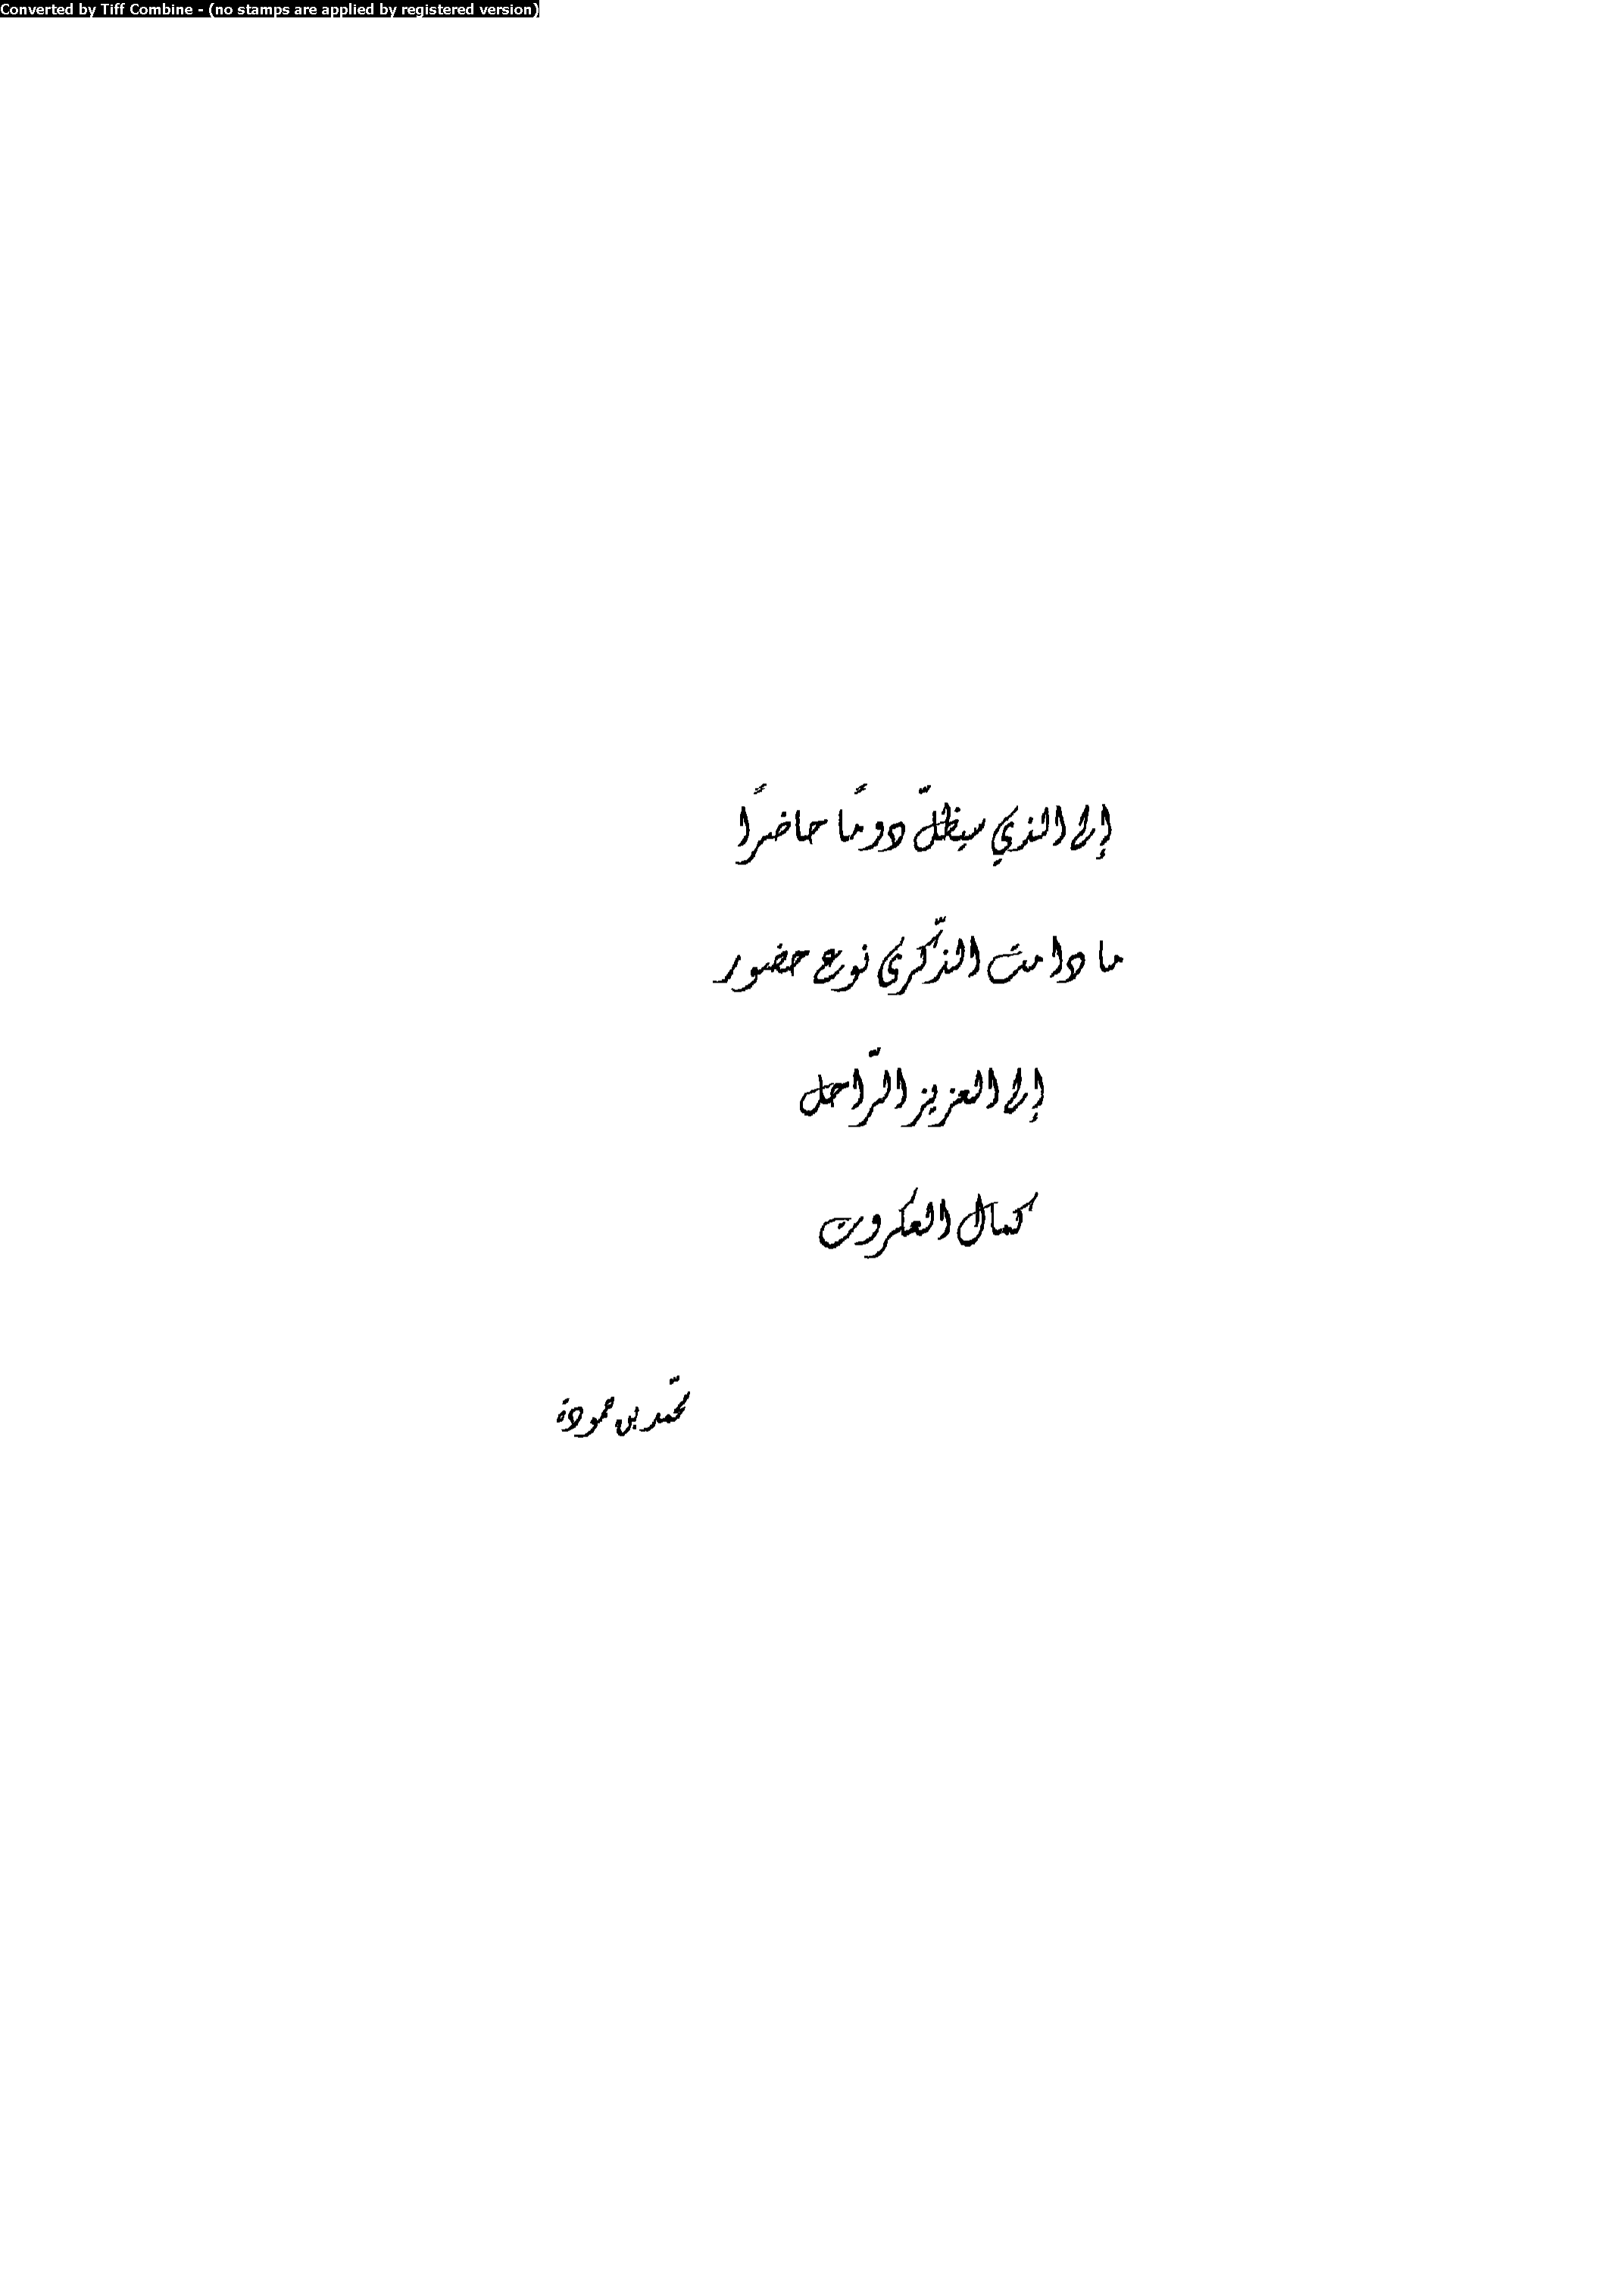 Converted by Tiff Combine - (no stamps are applied by registered version)
إلى الذي سيظلّ دومًا حاضرًا
ما دامت الذّكرى نوع حضور
إلى العزيز الرّاحل
كمال العكروت
محمّد بن حمودة